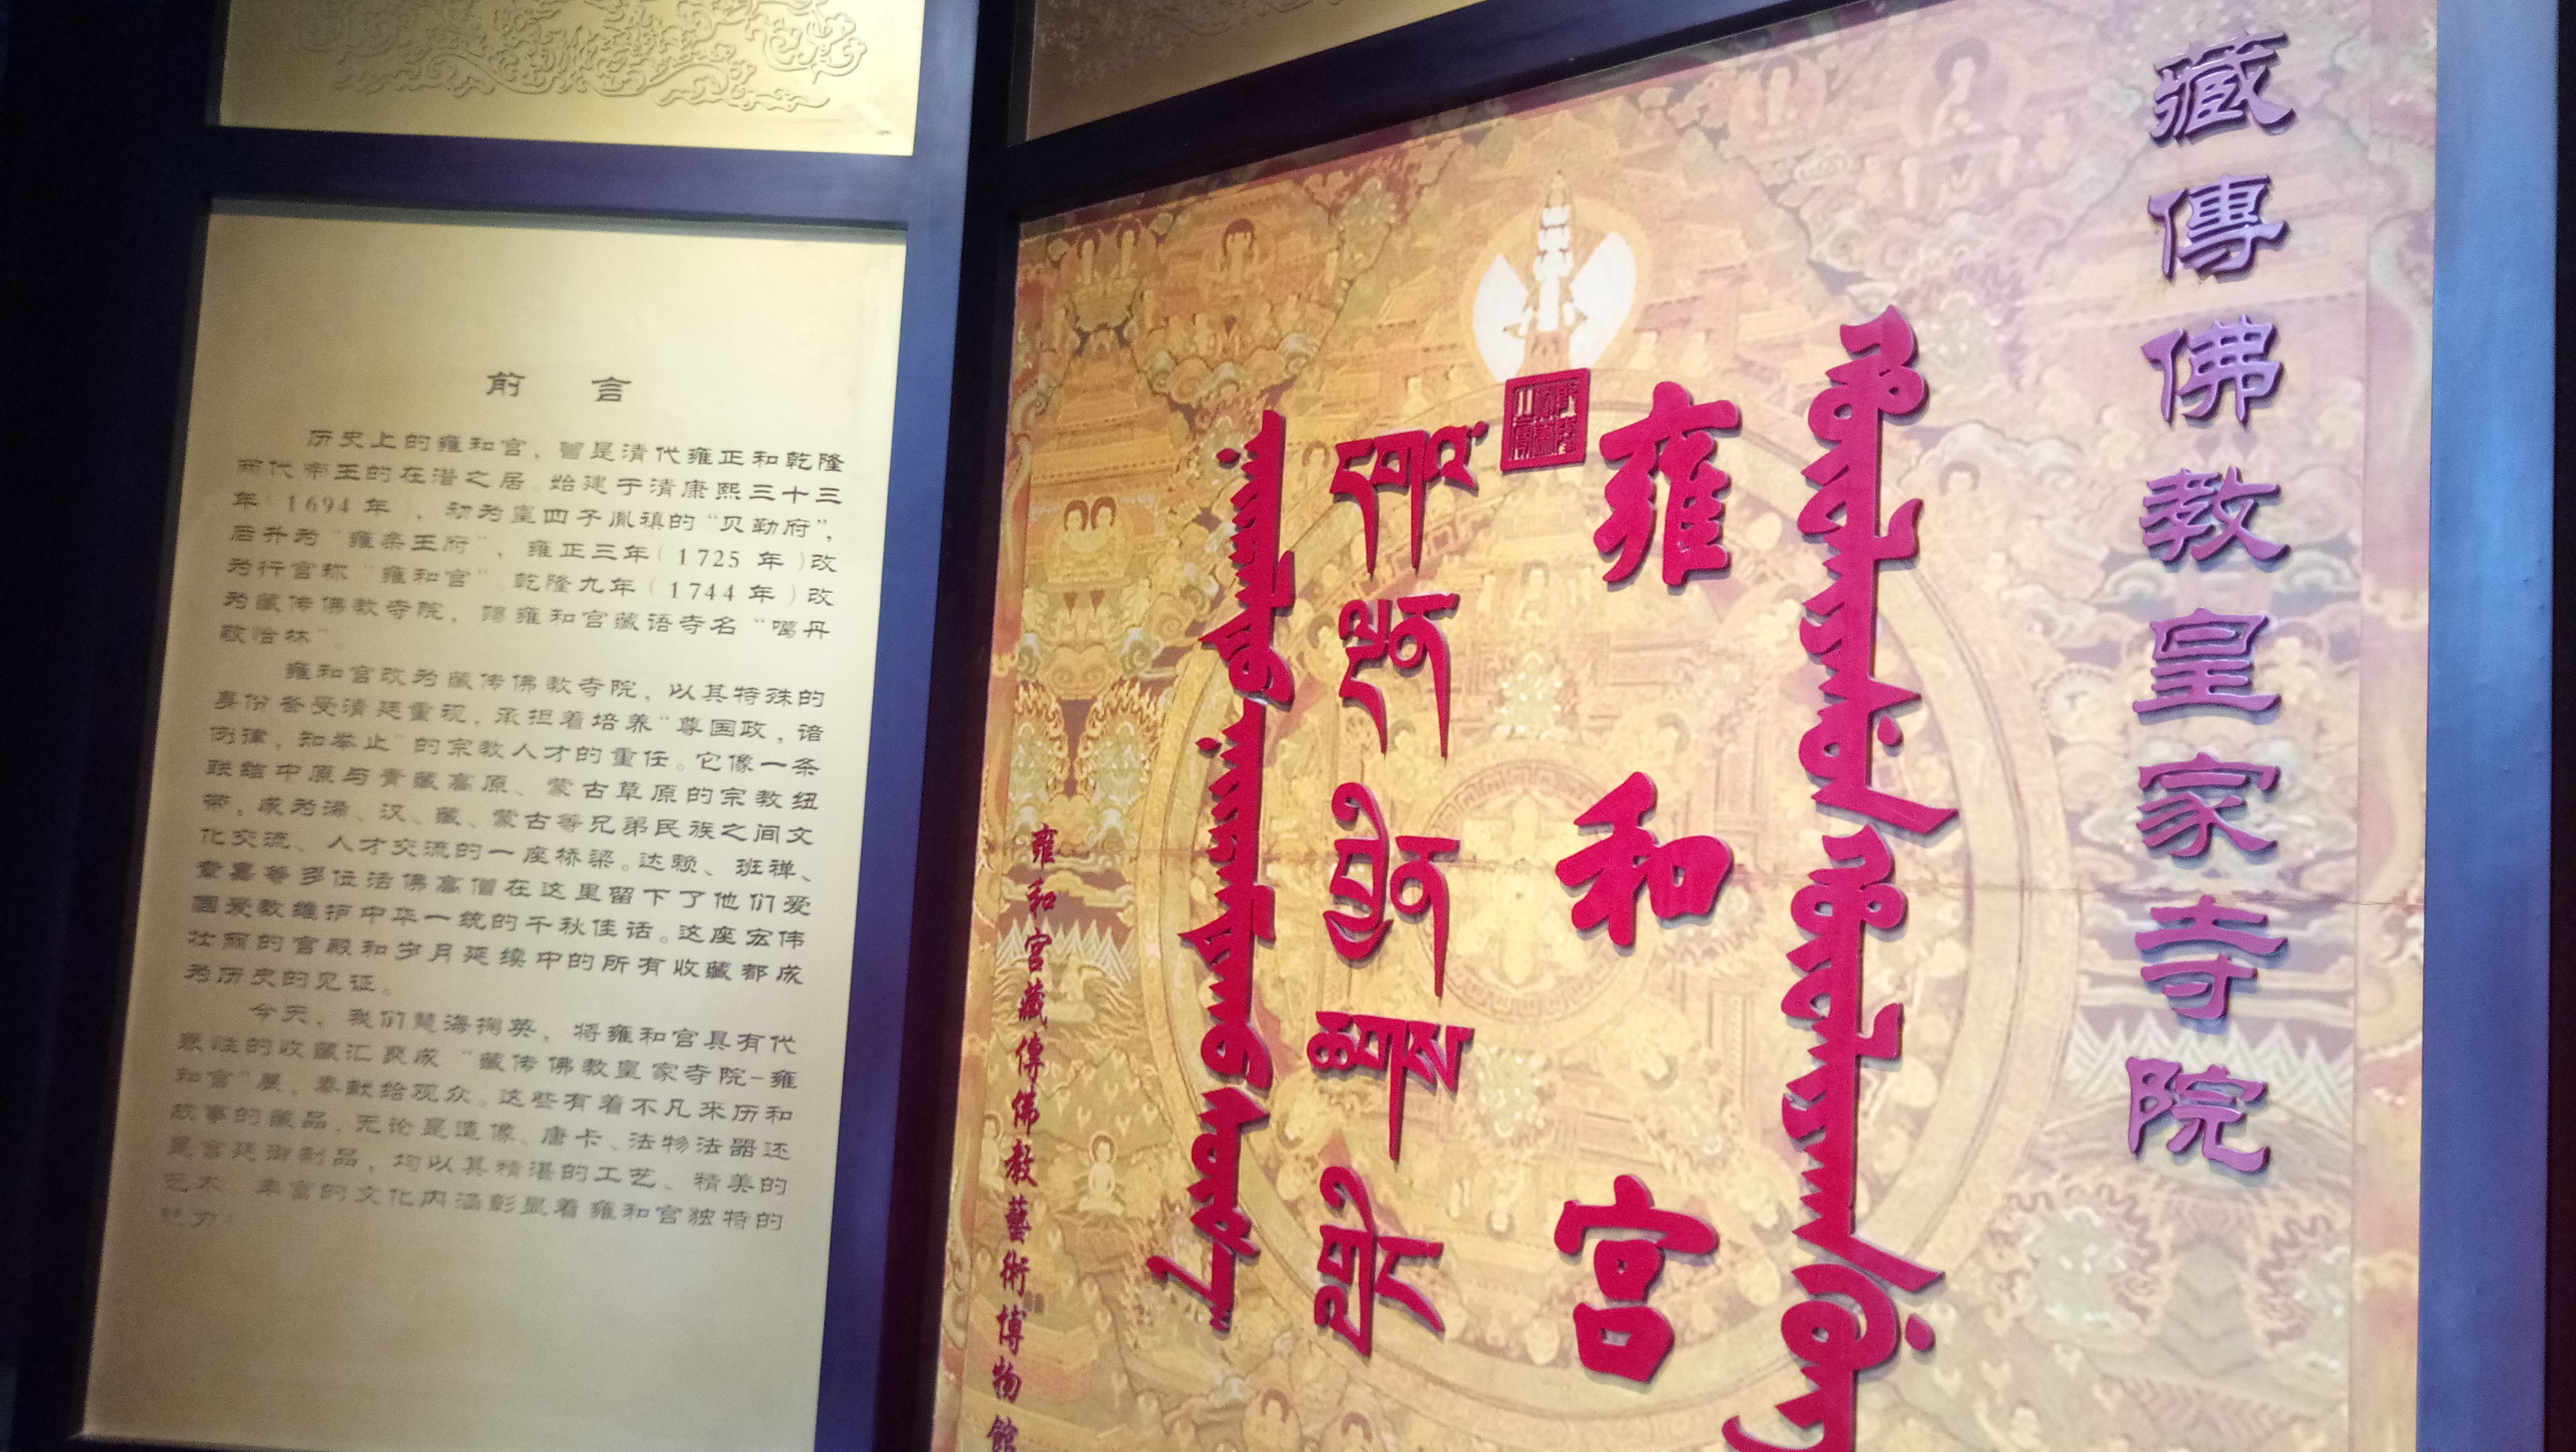 前 言
历史上的雍和宫，曾是清代雍正和乾隆
两代帝王的在潜之居。始建于清康熙三十三
年（1694 年），初为皇四子胤禛的“贝勒府”，
后升为“雍亲王府”，雍正三年（1725 年）改
为行宫称“雍和宫”。乾隆九年（1744 年）改
为藏传佛教寺院，赐雍和宫藏语寺名“噶丹
敬恰林”。
雍和宫改为藏传佛教寺院，以其特殊的
身份备受清廷重视，承担着培养“尊国政，谙
例律，知举止”的宗教人才的重任。它像一条
联结中原与青藏高原、蒙古草原的宗教纽
带，成为满、汉、藏、蒙古等兄弟民族之间文
化交流、人才交流的一座桥梁。达赖、班禅、
章嘉等多位活佛高僧在这里留下了他们爱
国爱教维护中华一统的千秋佳话。这座宏伟
壮丽的宫殿和岁月延续中的所有收藏都成
为历史的见证。
今天，我们慧海掬英，将雍和宫具有代
表性的收藏汇聚成“藏传佛教皇家寺院-雍
和宫”展，奉献给观众。这些有着不凡来历和
故事的藏品，无论是造像、唐卡、法物法器还
是宫廷御制品，均以其精湛的工艺、精美的
艺术、丰富的文化内涵彰显着雍和宫独特的
魅力！
藏傳佛教皇家寺院
雍和宫
དགའ་
ལྡན་
བྱིན་
ཆགས་
གླིང་
雍和宫藏傳佛教藝術博物館